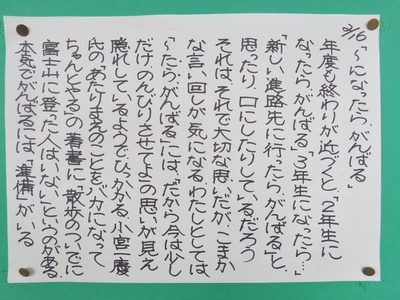 3/16「〜になったら、がんばる」
年度も終わりが近づくと、「2年生に
なったら、がんばる」「3年生になったら…」
「新しい進路先に行ったら、がんばる」と、
思ったり、口にしたりしているだろう
それは、それで大切な思いだが、こまか
な言い回しが気になるわたしとしては
「〜たら、がんばる」には、だから今は少し
だけ、のんびりさせてよの思いが見え
隠れしているようでひっかかる。小宮一慶
氏の「あたりまえのことをバカになって
ちゃんとやる」の著書に「散歩のついでに
富士山に登った人はいない」というのがある
本気でがんばるには「準備」がいる